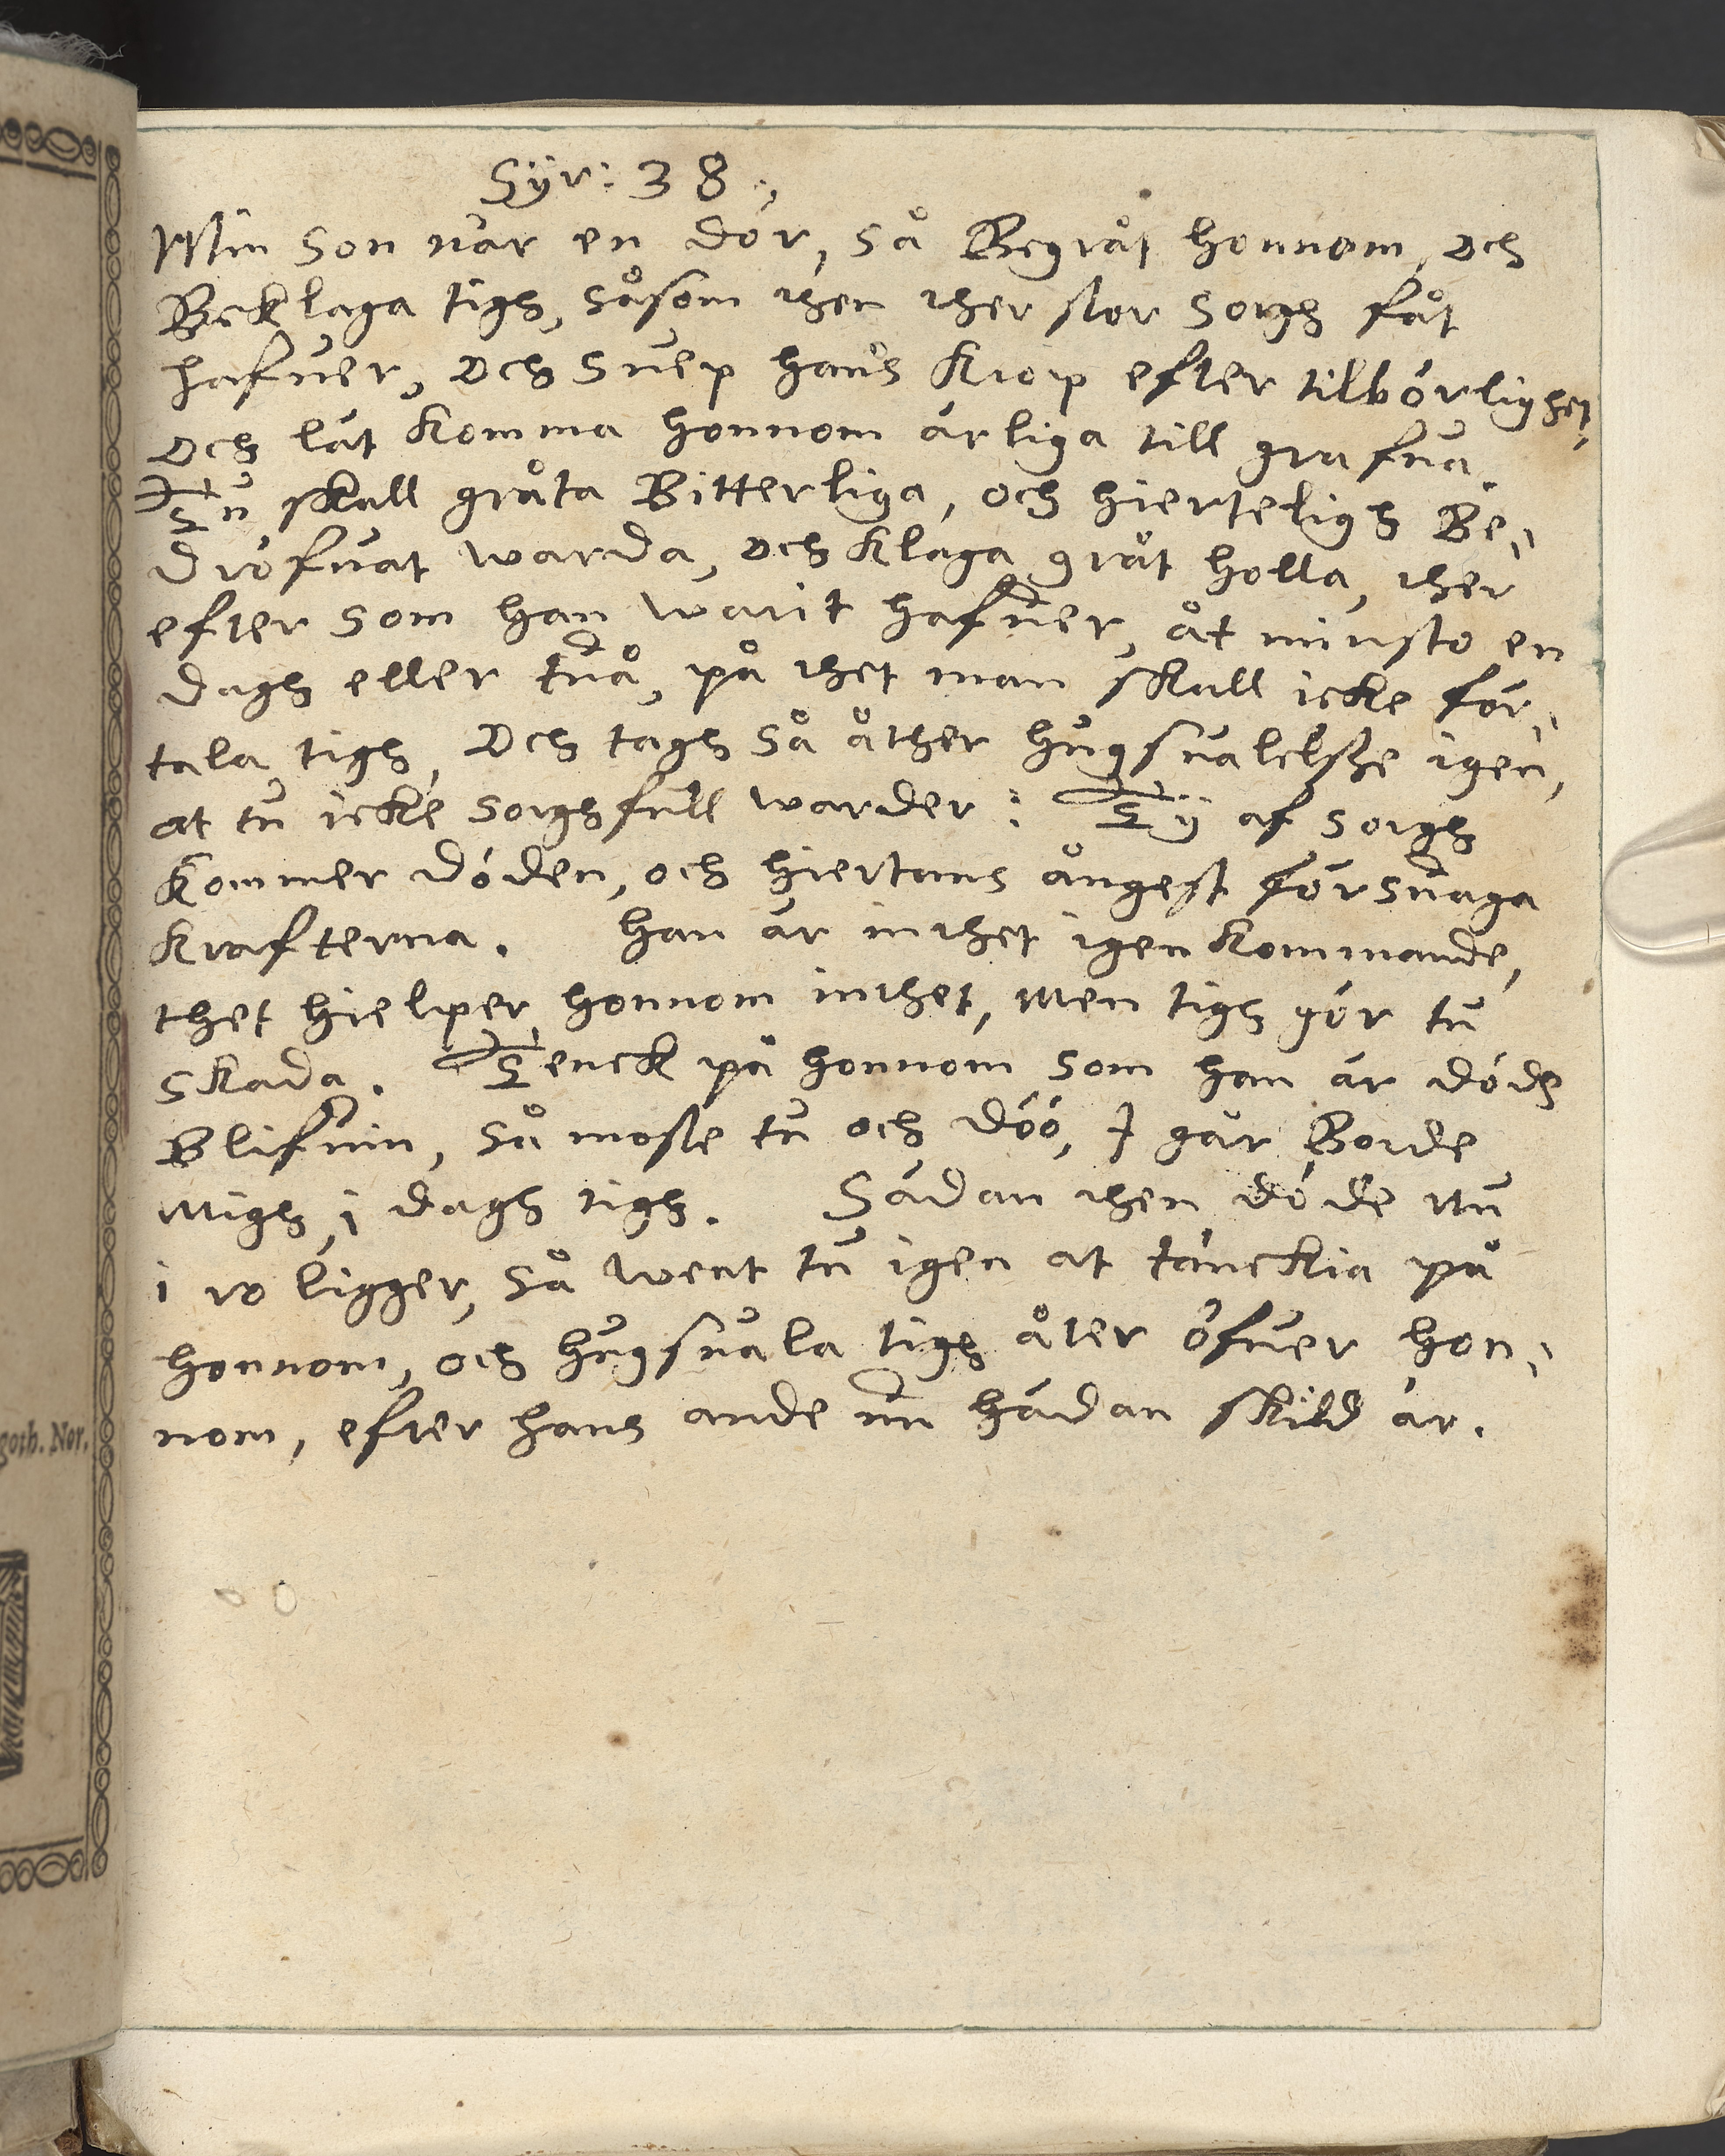 Syr: 38.,
Min son när en dör, så Begråt honnom, och
Beklaga tigh, såsom then ther stor sorgh fåt
hafuer, och suep hans Krop efter tilbörlighet,
och lät komma honnom ärliga till grafua
Tu skall gråta Bitterliga, och hierteligh Be„
dröfuat warda, och Klaga gråt holla, ther
efter som han warit hafuer, åt minsto en
dagh eller tuå, på thet man skall icke för„
tala tigh, Och tagh så åther hugsualelsse igen,
at tu icke sorghfull warder: Ty af sorgh
Kommer döden, och hiertans ångest försuaga
Krafterna. Han är inthet igen Kommande,
thet hielper honnom inthet, Men tigh gör tu
skada. Tenck på honnom som han är dödh
Blifuin, så moste tu och döö, I går Borde
Migh, i dagh tigh. Sädan then döde Nu
i ro ligger, så went tu igen at tänckia på
honnom, och hugsuala tigh åter öfuer hon„
nom, efter hans ande nu hädan skild är.
goth. Nor.